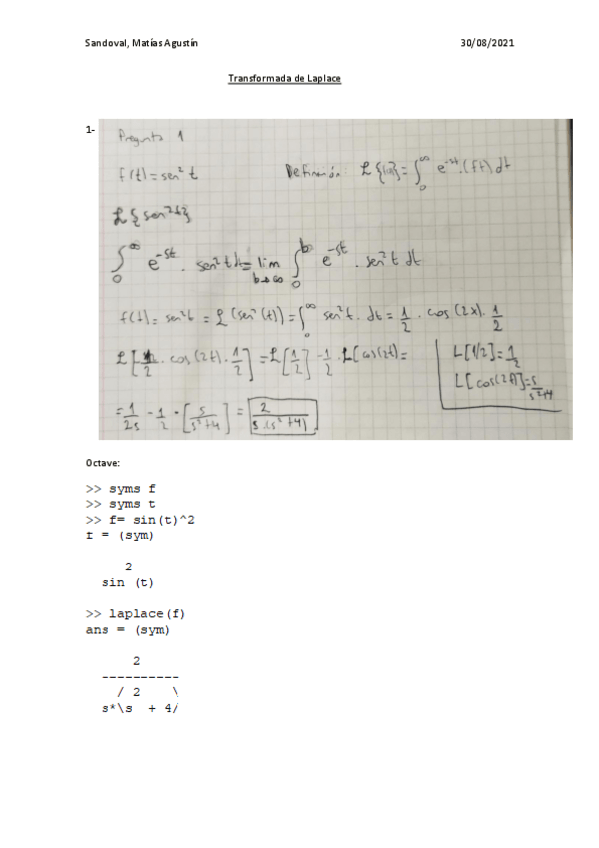 Sandoval, Matías Agustín 30/08/2021
Transformada de Laplace
1-
Pregunta 1
f(t) = sen² t Definición: ℒ{f(t)} = ∫₀^∞ e^-st.(ft) dt
ℒ{sen²t}
∫₀^∞ e^-st . sen²t dt = lim b→∞ ∫₀^b e^-st . sen²t dt
f(t) = sen²t = ℒ(sen²(t)) = ∫₀^∞ sen²t . dt = 1/2 . cos(2x). 1/2
ℒ[1/2 . cos(2t) . 1/2] = ℒ[1/2] - 1/2 . L[cos(2t) =
L[1/2] = 1/2
L[cos(2t)] = s/s²+4
= 1/2s - 1/2 * [s/s²+4] = 2/s.(s²+4)
Octave:
>> syms f
>> syms t
>> f= sin(t)^2
f = (sym)
2
sin (t)
>> laplace(f)
ans = (sym)
2
----------
/ 2 \
s*\s + 4/